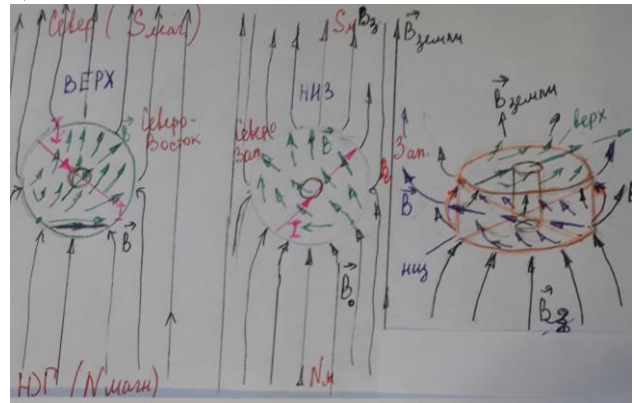 Север (Sмаг)
ВЕРХ
I
Северо-
Восток
B
I
B
ЮГ (Nмагн)
Sм Bз
НИЗ
Северо
Зап.
B
I
B₀
Nм
B земли
B земли
верх
Зап.
B
B
низ
B